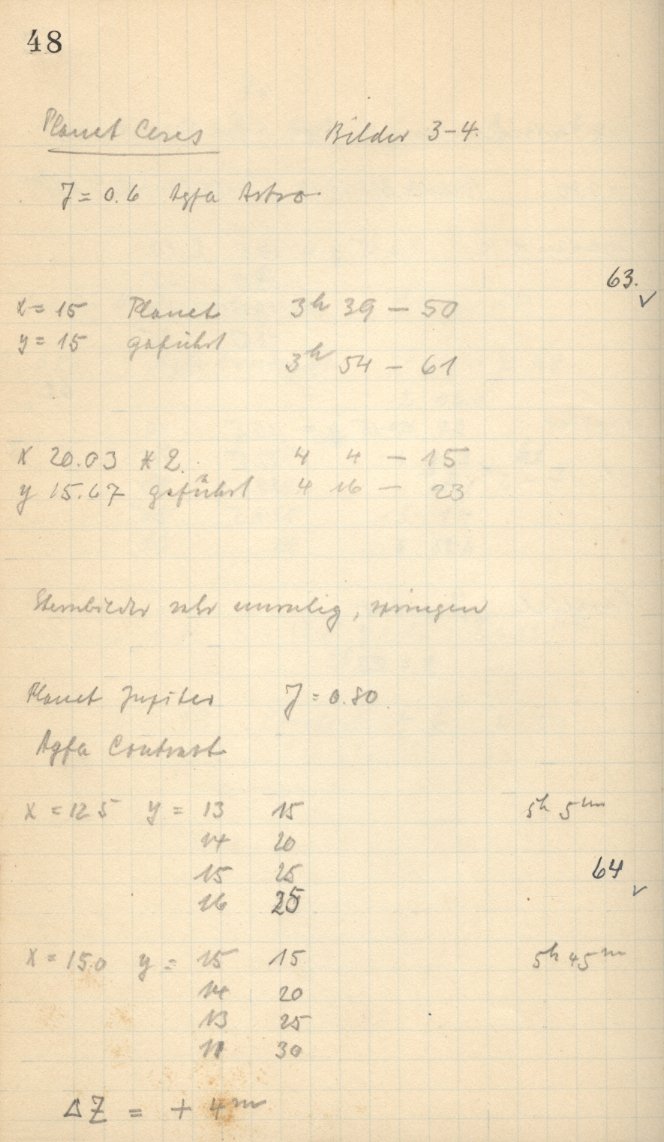 48
Planet Ceres Bilder 3-4.
J = 0.6 Agfa Astro
63.
x = 15 Planet 3h 39 - 50
y = 15 geführt
3h 54 - 61
x 20.03 * 2. 4 4 - 15
y 15.67 geführt 4 16 - 23
Sternbilder sehr unruhig, springen
Planet Jupiter J = 0.80
Agfa Contrast
x = 12.5 y = 13 15 5h 5m
14 20
15 25 64
16 25
x = 15.0 y = 15 15 5h 45m
14 20
13 25
11 30
ΔZ = + 4m